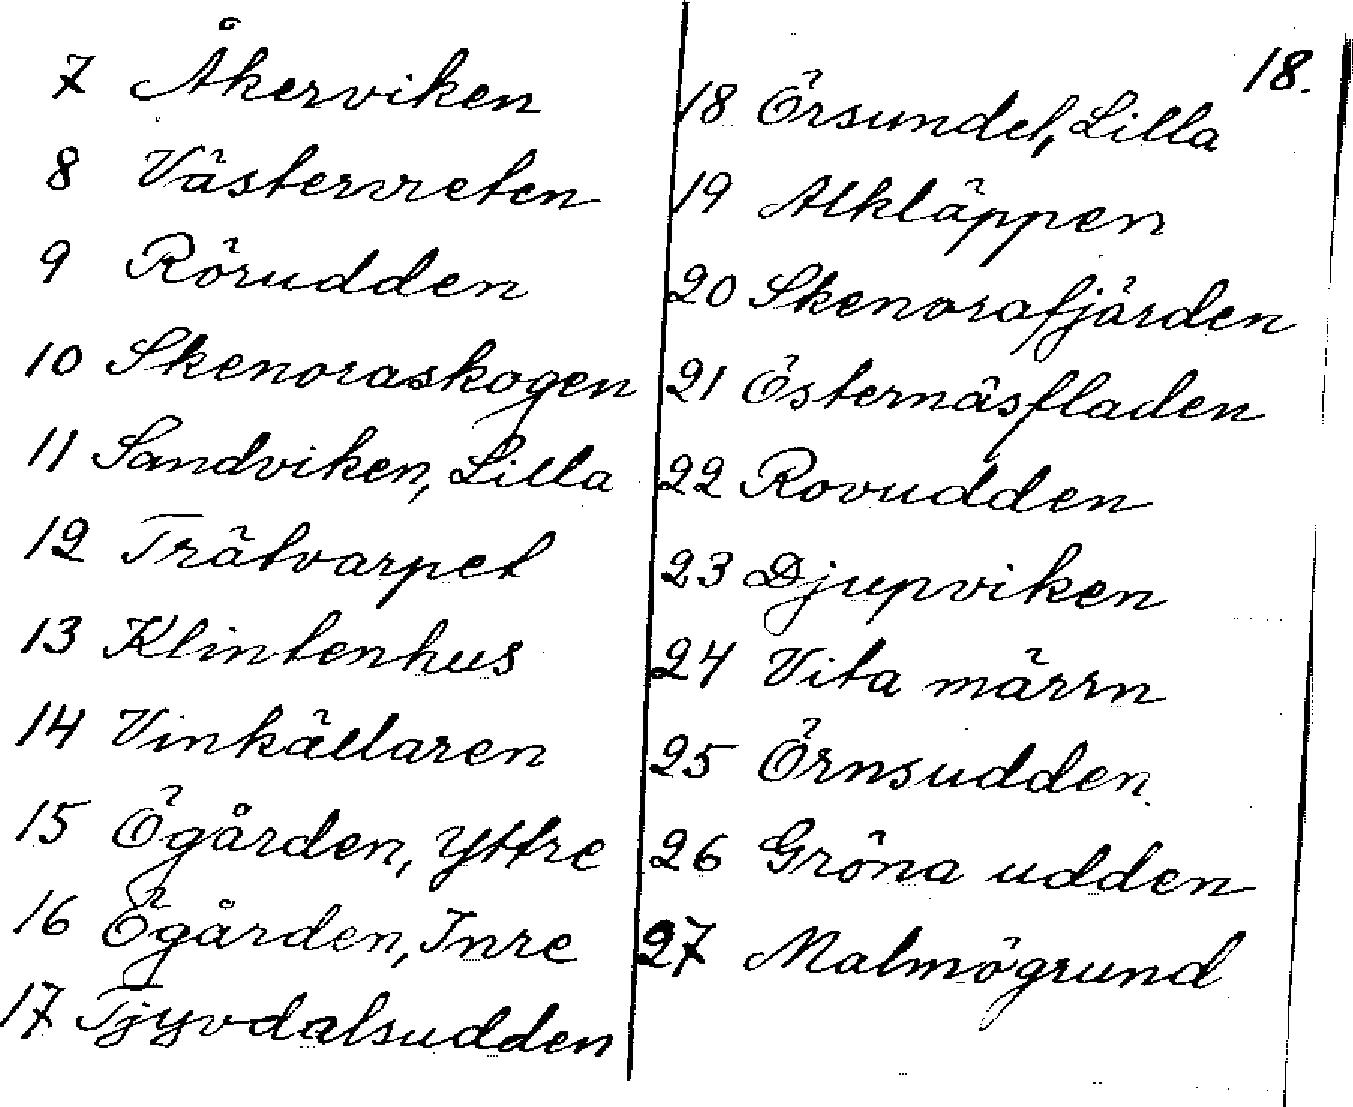 18.
7 Åkerviken
8 Västervreten
9 Rörudden
10 Skenoraskogen
11 Sandviken, Lilla
12 Trätvarpet
13 Klintenhus
14 Vinkällaren
15 Ögården, Yttre
16 Ögården, Inre
17 Tjyvdalsudden
18 Örsundet, Lilla
19 Alkläppen
20 Skenorafjärden
21 Östernäsfladen
22 Rovudden
23 Djupviken
24 Vita märrn
25 Örnsudden
26 Gröna udden
27 Malmögrund